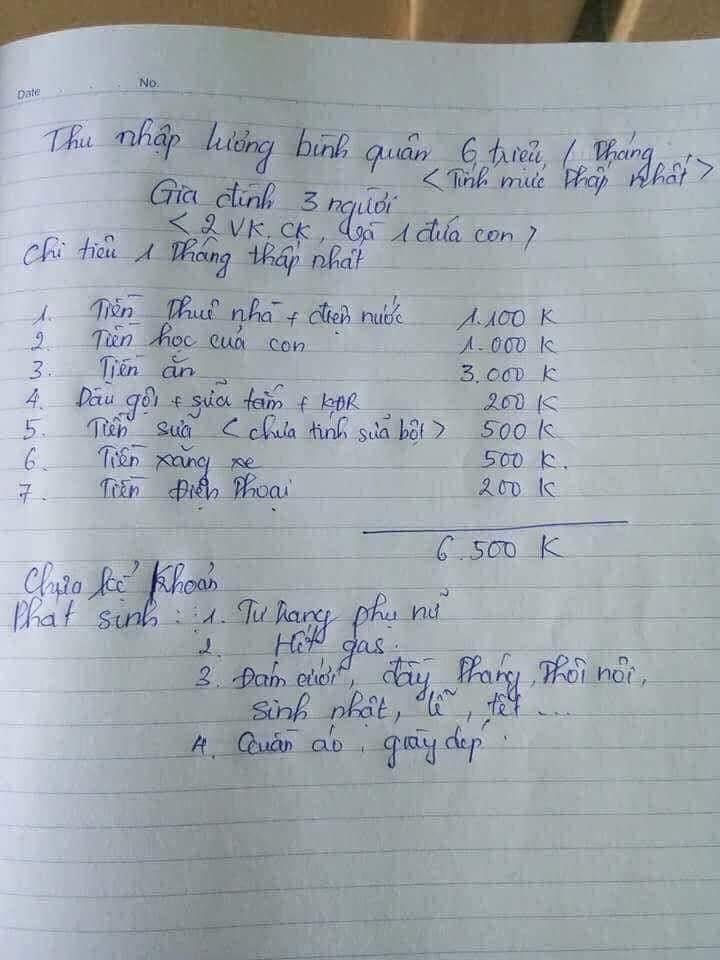 Date No.
Thu nhập lương bình quân 6 triệu / Tháng
< Tính mức thấp nhất >
Gia đình 3 người
< 2 VK.CK, và 1 đứa con >
Chi tiêu 1 Tháng thấp nhất
1. Tiền thuê nhà + điện nước 1.100 K
2. Tiền học của con 1.000 K
3. Tiền ăn 3.000 K
4. Dầu gội + sữa tắm + KĐR 200 K
5. Tiền sữa < chưa tính sữa bột > 500 K
6. Tiền xăng xe 500 K.
7. Tiền Điện Thoại 200 K
6.500 K
Chưa kể khoản
Phát sinh : 1. Tư trang phụ nữ
2. Hết gas.
3. Đám cưới, đầy tháng, thôi nôi,
sinh nhật, lễ, tết ...
4. Quần áo, giầy dép.